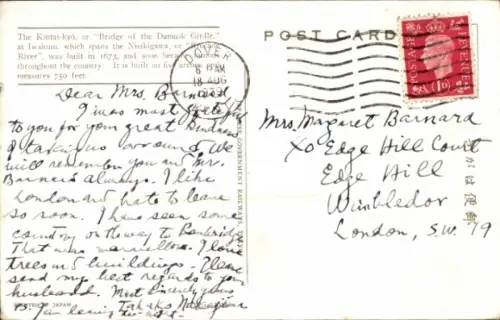 The Kintai-kyō, or "Bridge of the Damask Girdle,"
at Iwakuni, which spans the Nishikigawa, or "
River", was built in 1673, and soon became
throughout the country. It is built on five arches
measures 750 feet.
POST CARD
DOVER
6 PM
18 AUG
POSTAGE
REVENUE
1D
Dear Mrs. Barnard,
I was most grateful
to you for your great kindness
of taking us around. We
will remember you and Mr.
Barnard always. I like
London and hate to leave
so soon. I have seen some
country on the way to
That was marvellous. I love
trees and buildings. Please
send my best regards to your
husband. Most Sincerely yours
P.S. I am leaving Takako
Mrs. Margaret Barnard
Edge Hill Court
Edge Hill
Wimbledon
London, S.W. 19
GOVERNMENT RAILWAYS
きがは便郵
JAPAN